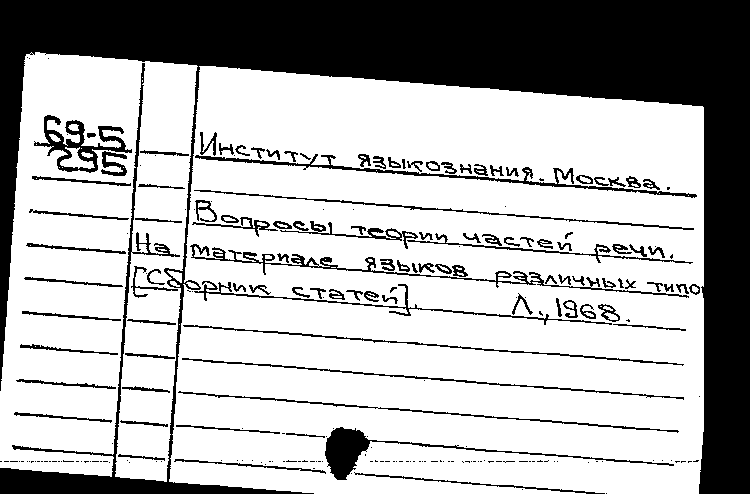 69-5
295
Институт языкознания. Москва.
Вопросы теории частей речи.
На материале языков различных типо
[Сборник статей]. Л., 1968.